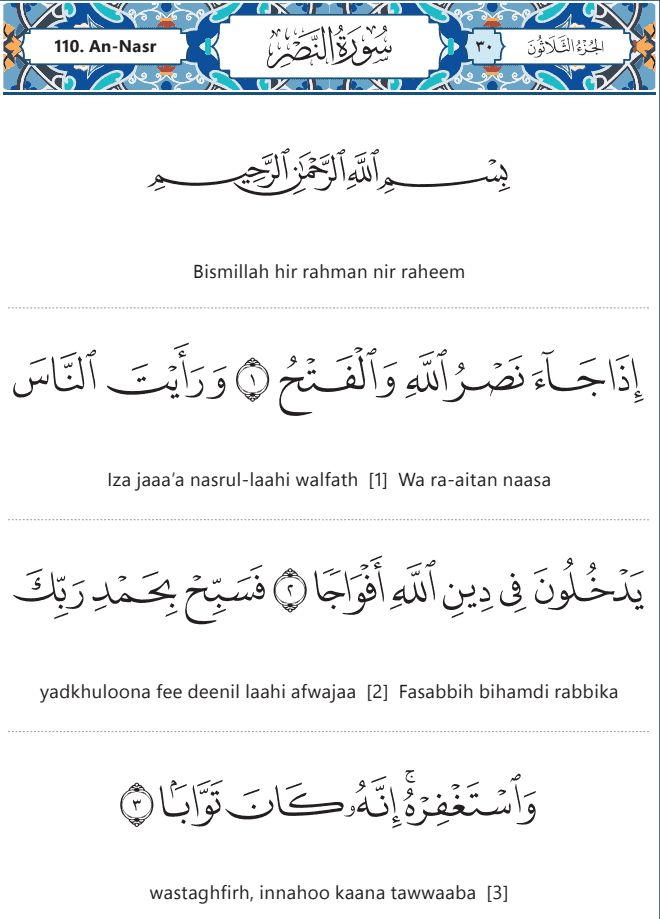 110. An-Nasr
سُورَةُ النَّصْرِ
٣٠
الجُزْءُ الثَّلَاثُونَ
بِسْمِ ٱللَّهِ ٱلرَّحْمَٰنِ ٱلرَّحِيمِ
Bismillah hir rahman nir raheem
إِذَا جَآءَ نَصْرُ ٱللَّهِ وَٱلْفَتْحُ ١ وَرَأَيْتَ ٱلنَّاسَ
Iza jaaa’a nasrul-laahi walfath [1] Wa ra-aitan naasa
يَدْخُلُونَ فِى دِينِ ٱللَّهِ أَفْوَاجًا ٢ فَسَبِّحْ بِحَمْدِ رَبِّكَ
yadkhuloona fee deenil laahi afwajaa [2] Fasabbih bihamdi rabbika
وَٱسْتَغْفِرْهُ ۚ إِنَّهُۥ كَانَ تَوَّابَۢا ٣
wastaghfirh, innahoo kaana tawwaaba [3]